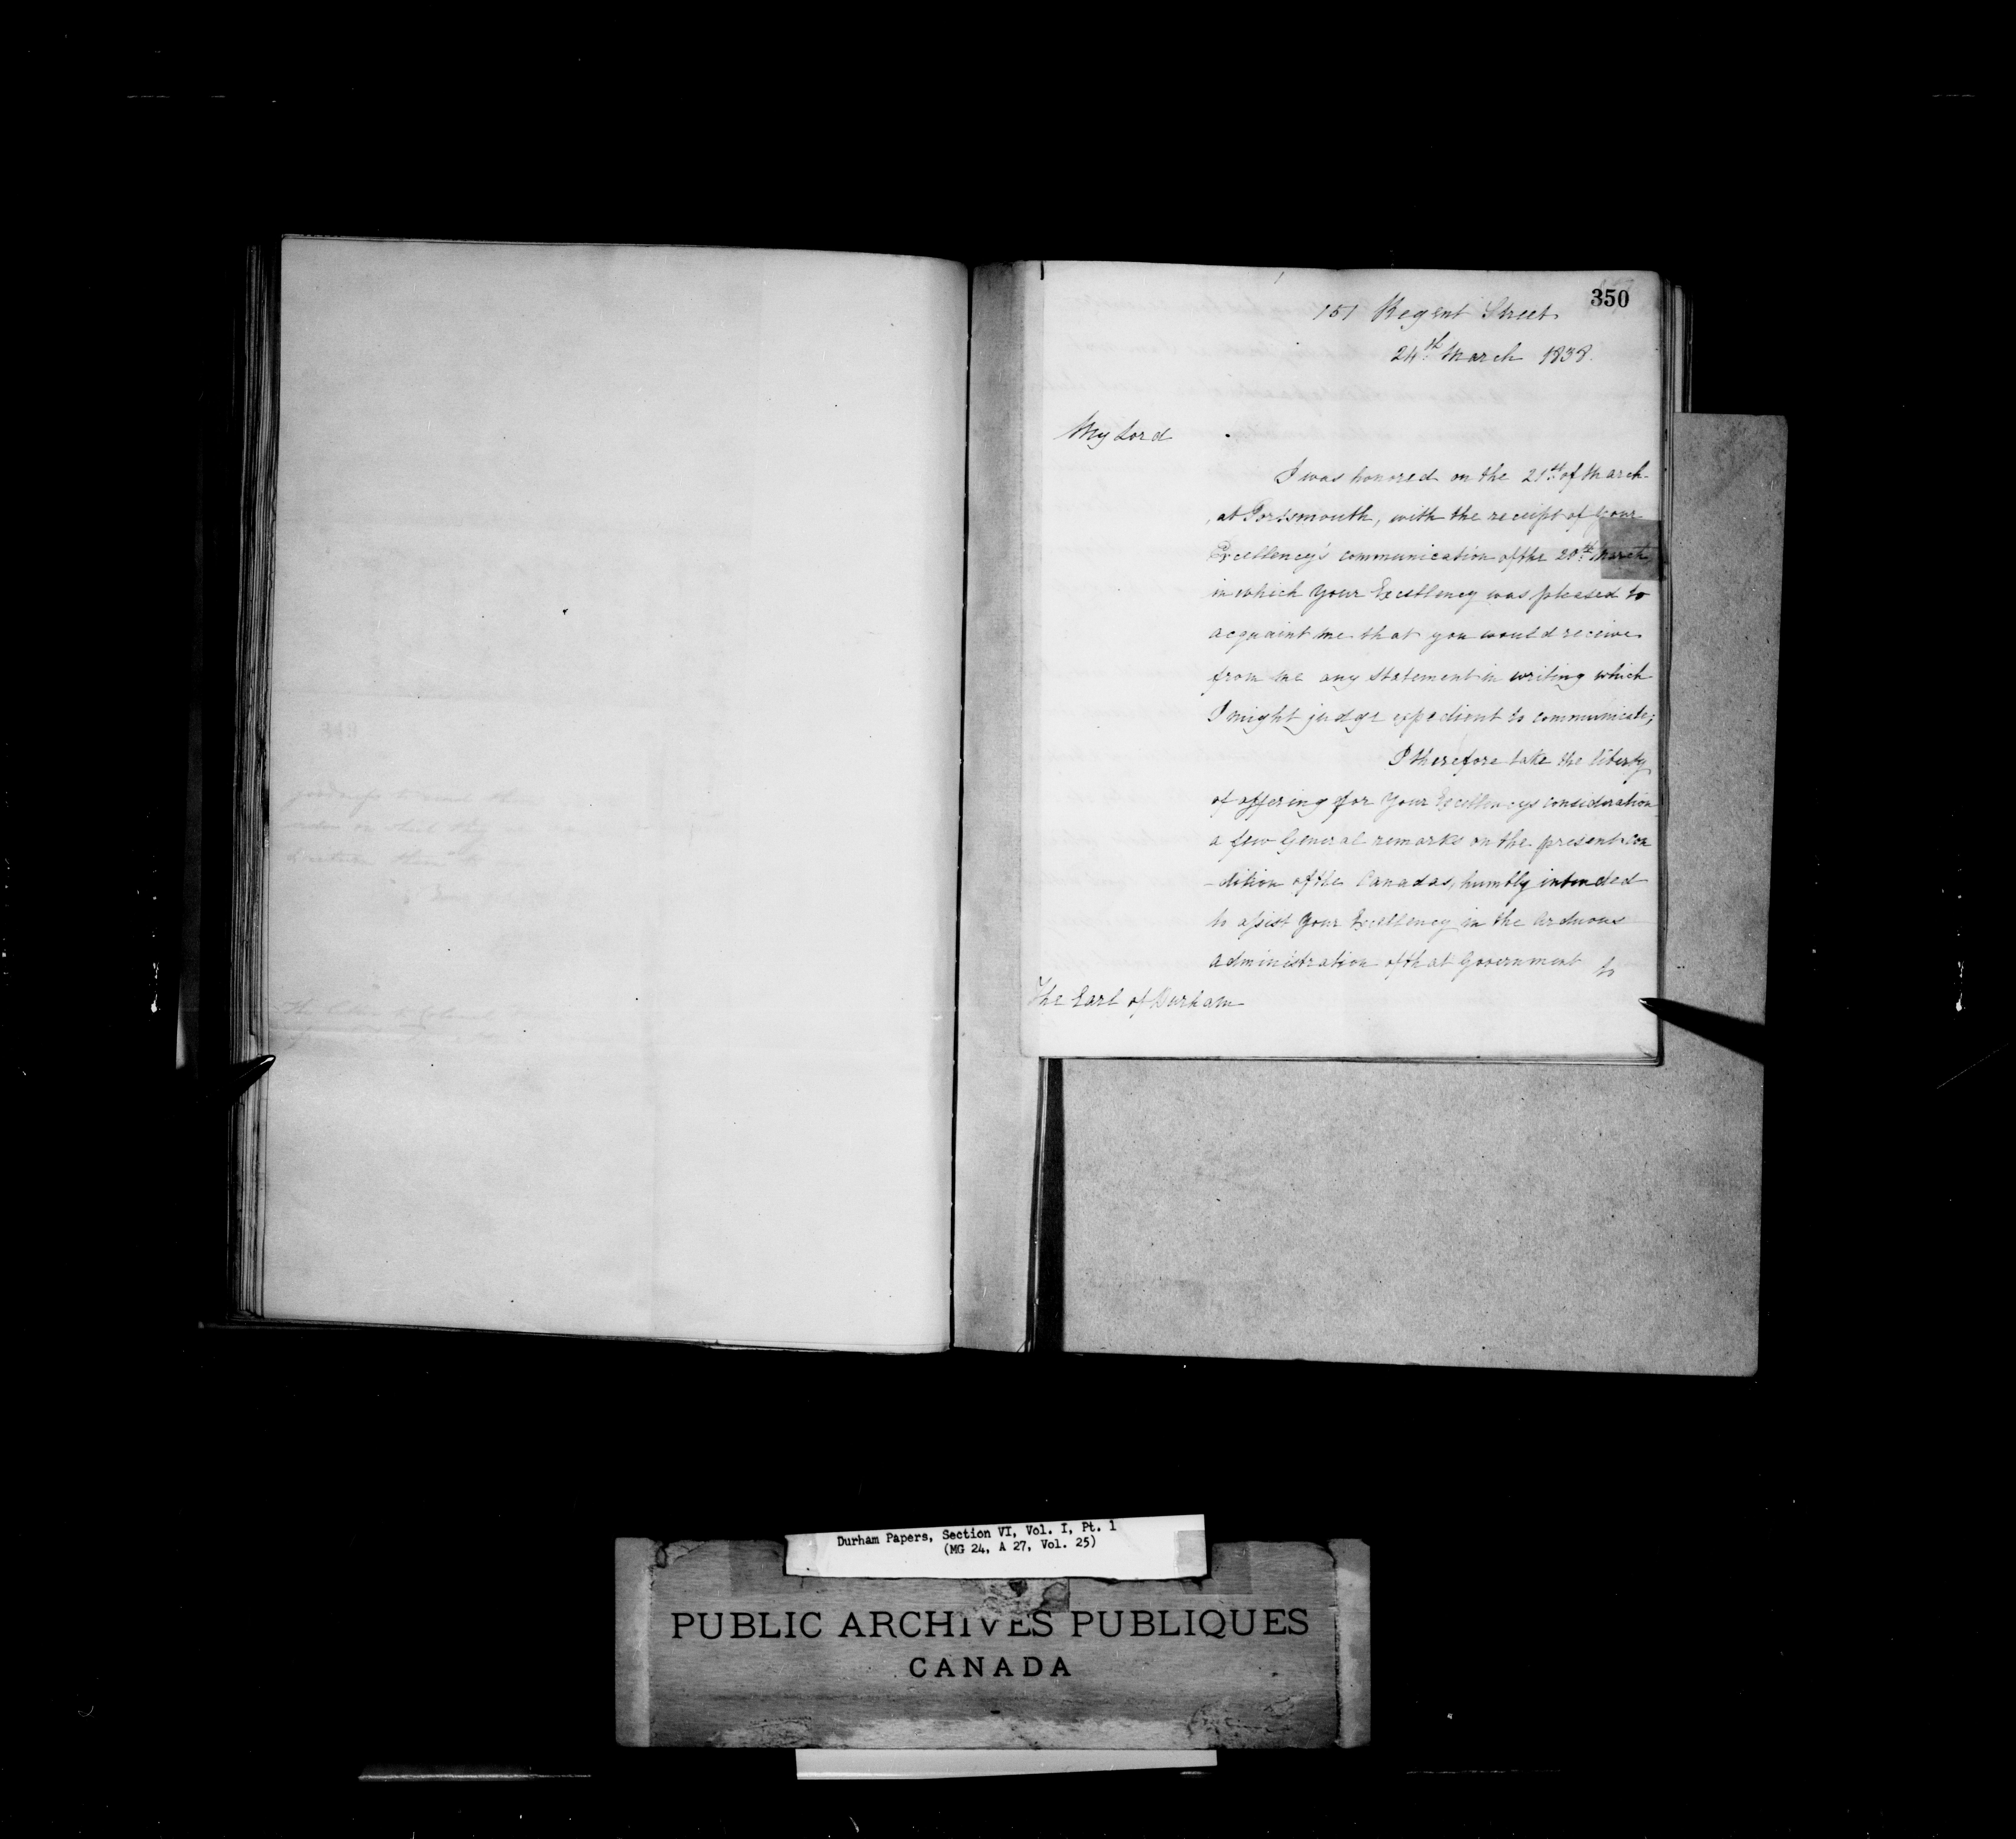 350
151 Regent Street
24th March 1838.
My Lord
I was honored on the 21st of March
at Portsmouth, with the receipt of your
Excellency's communication of the 20th March
in which your Excellency was pleased to
acquaint me that you would receive
from me any statement in writing which
I might judge expedient to communicate;
I therefore take the liberty
of offering for your Excellencys consideration
a few General remarks on the present con
-dition of the Canadas, humbly intended
to assist your Excellency in the arduous
administration of that Government
to
The Earl of Durham
Durham Papers, Section VI, Vol. I, Pt. 1
(MG 24, A 27, Vol. 25)
PUBLIC ARCHIVES PUBLIQUES
CANADA